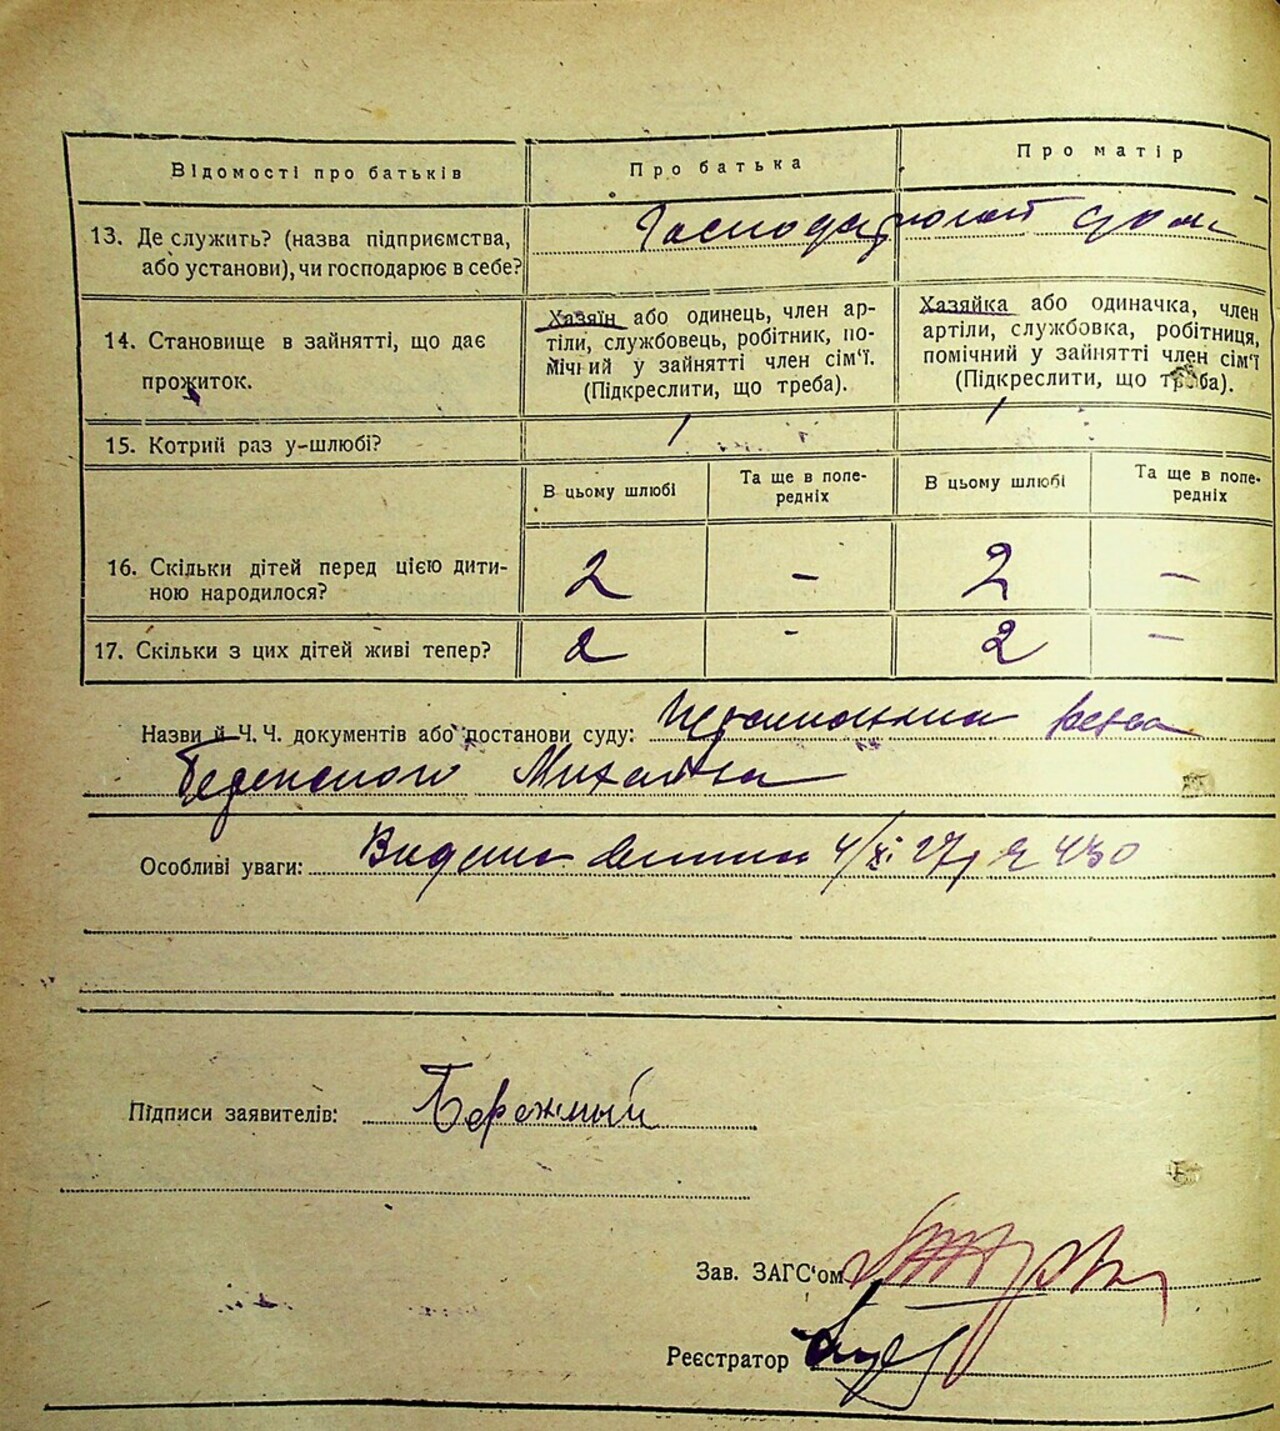 Відомості про батьків
Про батька
Про матір
13. Де служить? (назва підприємства,
або установи), чи господарює в себе?
Господарюють
14. Становище в зайнятті, що дає
прожиток.
Хазяїн або одинець, член ар-
тіли, службовець, робітник, по-
мічний у зайнятті член сім'ї.
(Підкреслити, що треба).
Хазяйка або одиначка, член
артіли, службовка, робітниця,
помічний у зайнятті член сім'ї
(Підкреслити, що треба).
15. Котрий раз у-шлюбі?
1
1
В цьому шлюбі
Та ще в попе-
редніх
В цьому шлюбі
Та ще в попе-
редніх
16. Скільки дітей перед цією дити-
ною народилося?
2 - 2 -
17. Скільки з цих дітей живі тепер?
2 - 2 -
Назви й Ч. Ч. документів або постанови суду:
Михайла
Особливі уваги: Видано 4/XI 27 430
Підписи заявителів: Бережный
Зав. ЗАГС'ом
Реєстратор